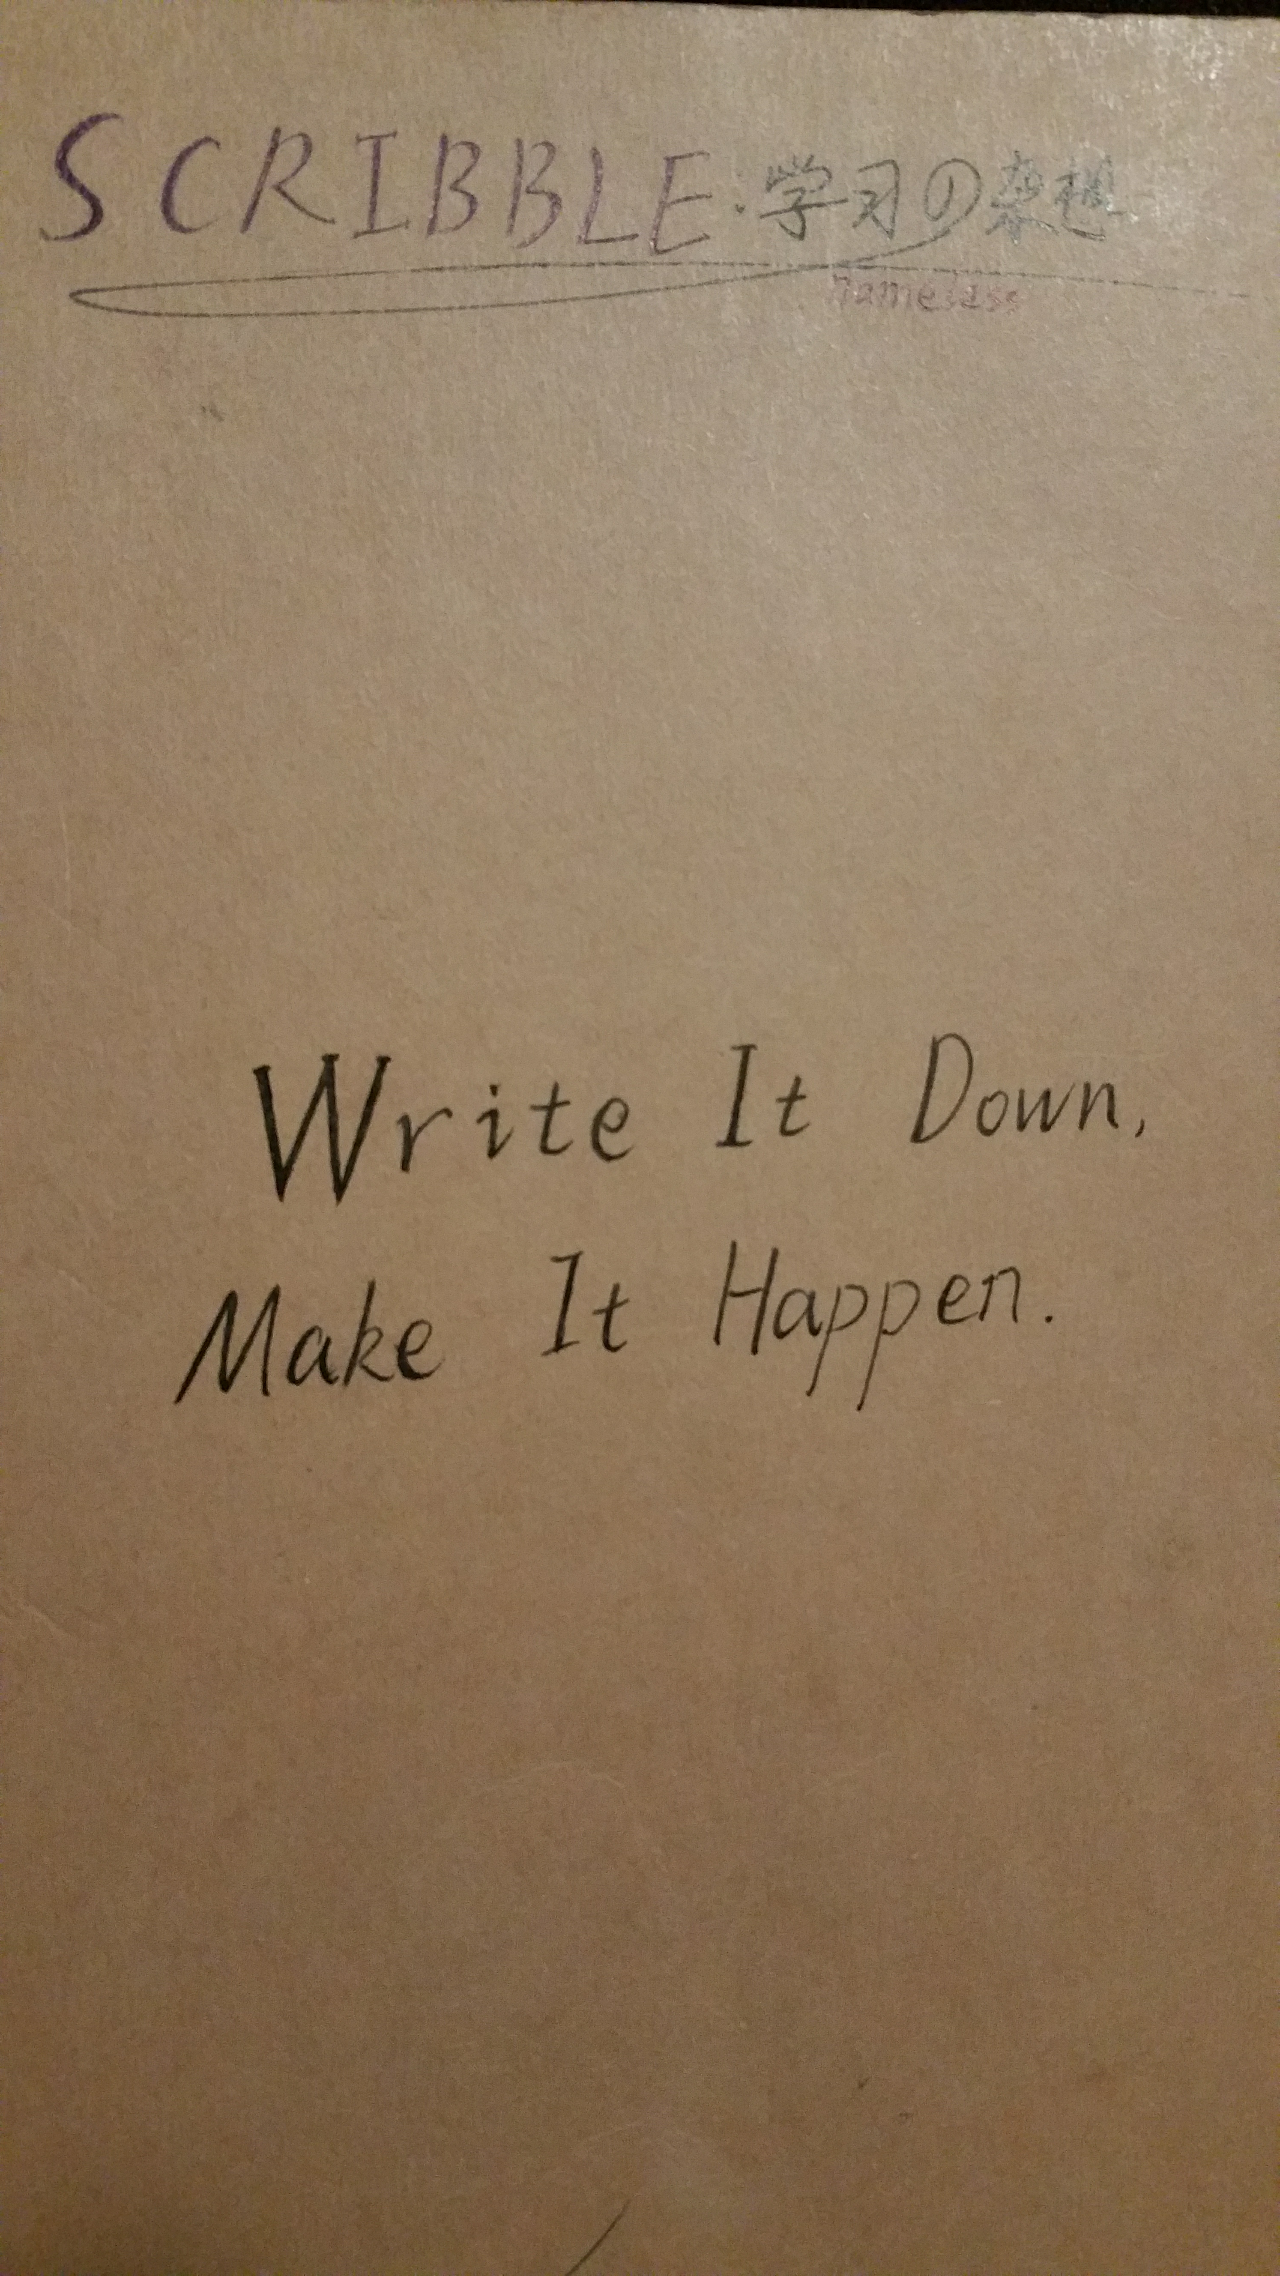 SCRIBBLE·学习の杂想
nameless
Write It Down,
Make It Happen.